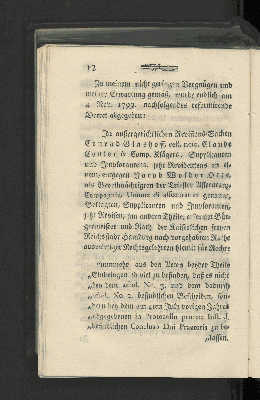 12
Zu meinem nicht geringen Vergnügen und
meiner Erwartung gemäß, wurde endlich am
4 Nov. 1799. nachfolgendes reformirende
Decret abgegeben:
In außergerichtlichen Revisions-Sachen
Conrad Glashoff, cull. noie. Claude
& Comp. Klägers, Supplicanten
und Imploranten, jetzt Revidenten an ei-
nem, entgegen Jacob Wolder
als Bevollmächtigten der Triester Assecuranz-
Compagnie,
Beklagten, Supplicaten und Imploraten,
jetzt Revisen, am andern Theile, erkennet Bür-
germeister und Rath der Kaiserlichen freyen
Reichsstadt Hamburg nach vorgehabtem Rathe
auswärtiger Rechtsgelehrten hiemit für Recht:
nunmehr aus den Acten beyder Theile
„Einbringen so viel zu befinden, daß es nicht
„bey dem sub No. 3. und dem dadurch
No. 2. befindlichen Bescheiden, son-
„dern bey dem am 4ten July vorigen Jahres
„abgegebenen in Protocollo primae Inst.
„befindlichen Concluso Dni Praetoris zu be-
„lassen,